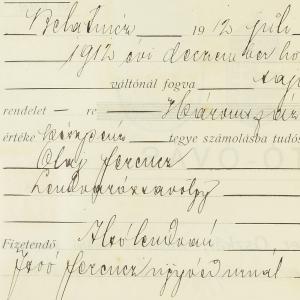 Belatincz 1912 júli
1912 évi deczember hó
váltónál fogva
rendelet — re Háromszáz
értéke készpénz tegye számolásba tudós
Olaj Ferencz
Lendvarózsavölgy
Fizetendő Alsólendvai
Ferencz ügyvéd urnál